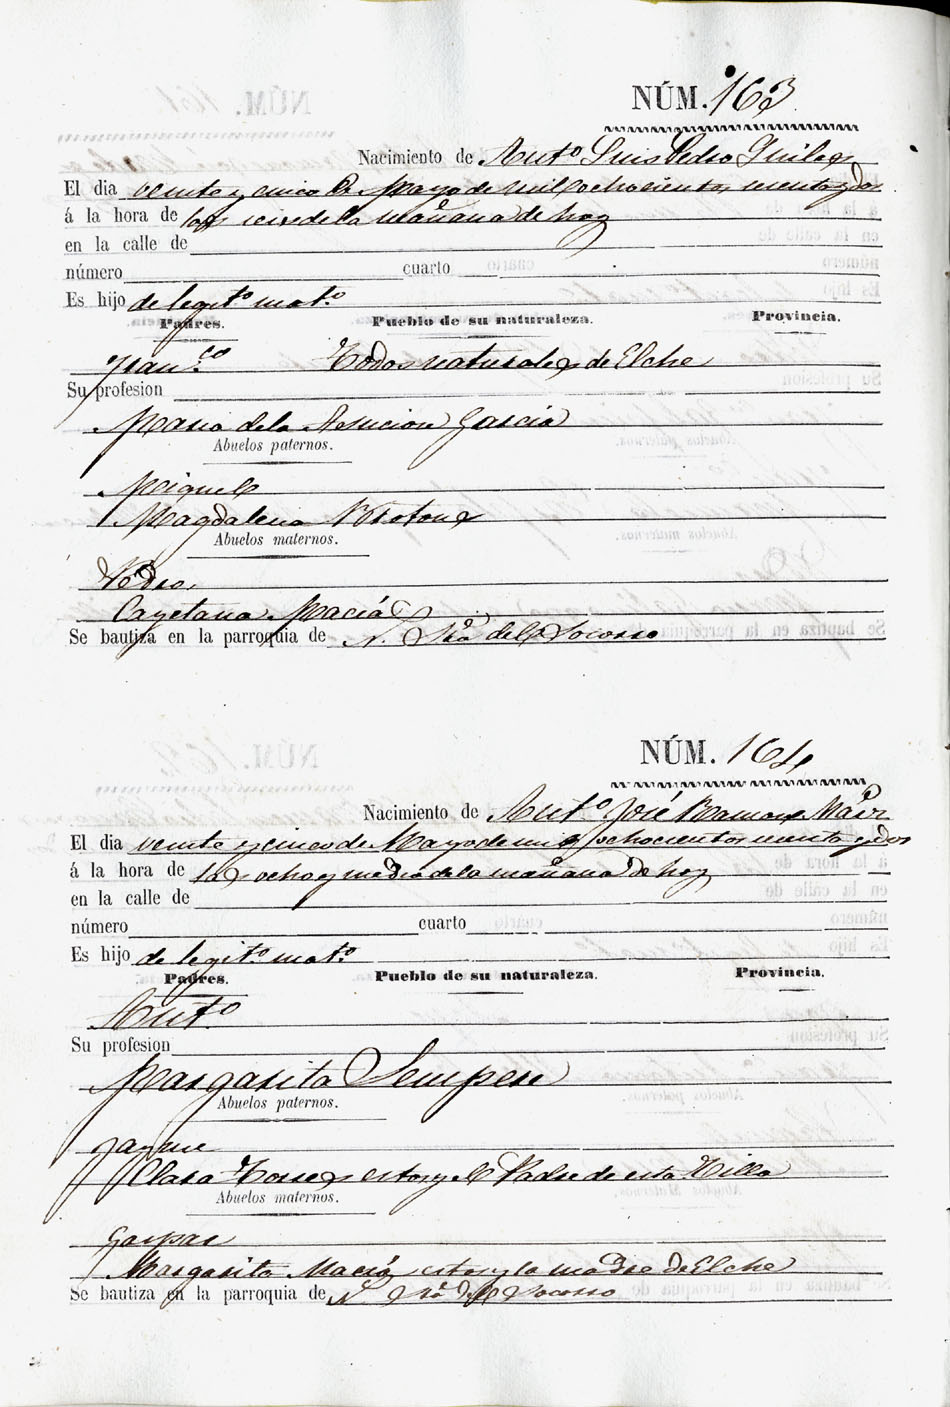 NÚM. 163
Nacimiento de Antº Luis Pedro Quiles
El dia veinte y cinco de Mayo de mil ochocientos treinta y dos
á la hora de las seis de la mañana de hoy
en la calle de
número cuarto
Es hijo de legitº matº
Padres. Pueblo de su naturaleza. Provincia.
Franco Todos naturales de Elche
Su profesion
Maria de la Asuncion Garcia
Abuelos paternos.
Miguel
Magdalena Brotons
Abuelos maternos.
Pedro
Cayetana Maciá
Se bautiza en la parroquia de N. Sra del Socorro
NÚM. 164
Nacimiento de Antº José Ramon
El dia veinte y cinco de Mayo de mil ochocientos treinta y dos
á la hora de las ocho y media de la mañana de hoy
en la calle de
número cuarto
Es hijo de legitº matº
Padres. Pueblo de su naturaleza. Provincia.
Antº
Su profesion
Margarita Sempere
Abuelos paternos.
Jayme
Clara Torres estos y el Padre de esta Villa
Abuelos maternos.
Gaspar
Margarita Maciá estos y la madre de Elche
Se bautiza en la parroquia de N. Sra del Socorro